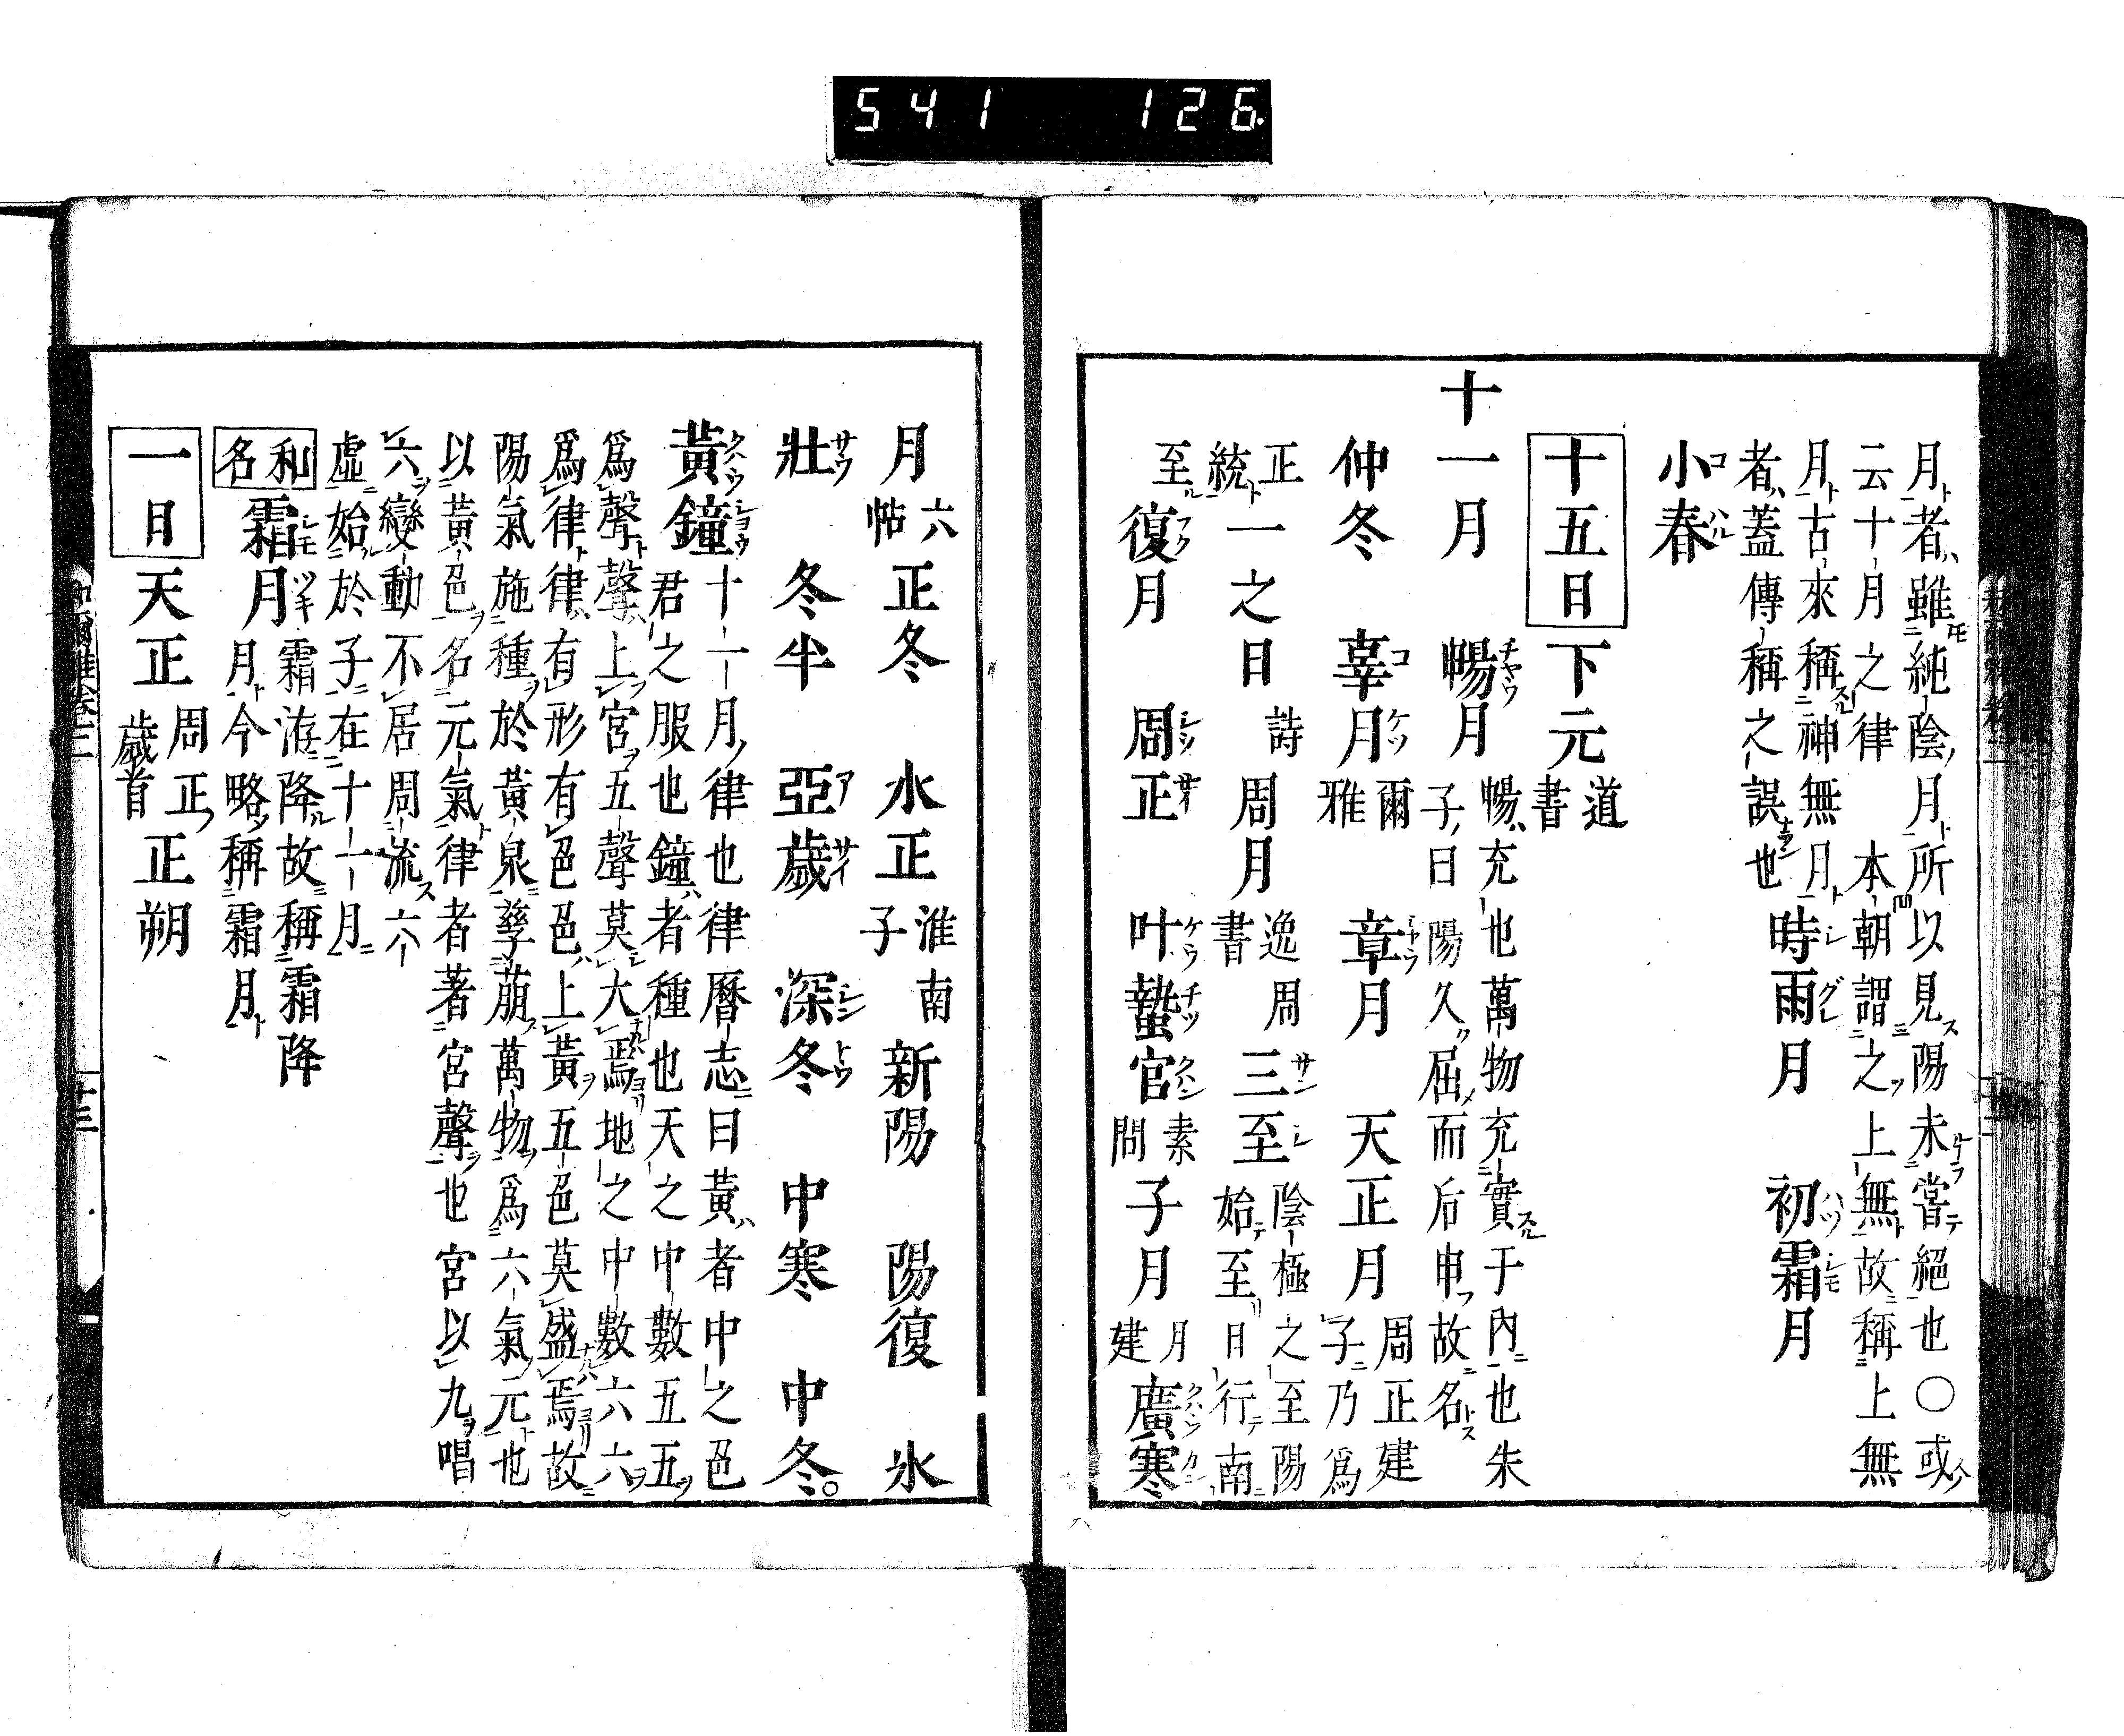 541 126
月者雖純陰月所以見陽未嘗絕也○或
云十月之律 本朝謂之上無故稱上無
月古來稱神無月 時雨月 初霜月
者蓋傳稱之誤也
小春
十五日 下元 道書
十一月 暢月 暢充也萬物充實于內也朱
子曰陽久屈而后申故名
仲冬 辜月 爾雅 章月 天正月 周正建
子乃爲
正統 一之日 詩 周月 逸周書 三至 陰極之至陽
始至日行南
至 復月 周正 叶蟄官 素問 子月 月建 廣寒
月 六帖 正冬 水正 淮南子 新陽 陽復 氷
壯 冬半 亞歲 深冬 中寒 中冬
黃鐘 十一月律也律曆志曰黃者中之色
君之服也鐘者種也天之中數五五
爲聲聲上宮五聲莫大焉地之中數六六
爲律律有形有色色上黃五色莫盛焉故
陽氣施種於黃泉孳萠萬物爲六氣元也
以黃色名元氣律者著宮聲也宮以九唱
六變動不居周流六
虛始於子在十一月
和名 霜月 霜洊降故稱霜降
月今略稱霜月
一日 天正 周正歲首 正朔
十三